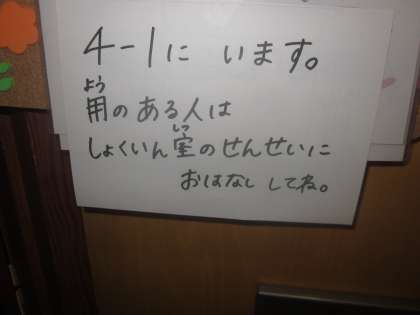 4-1に います。
よう
用のある人は
しつ
しょくいん室のせんせいに
おはなし してね。